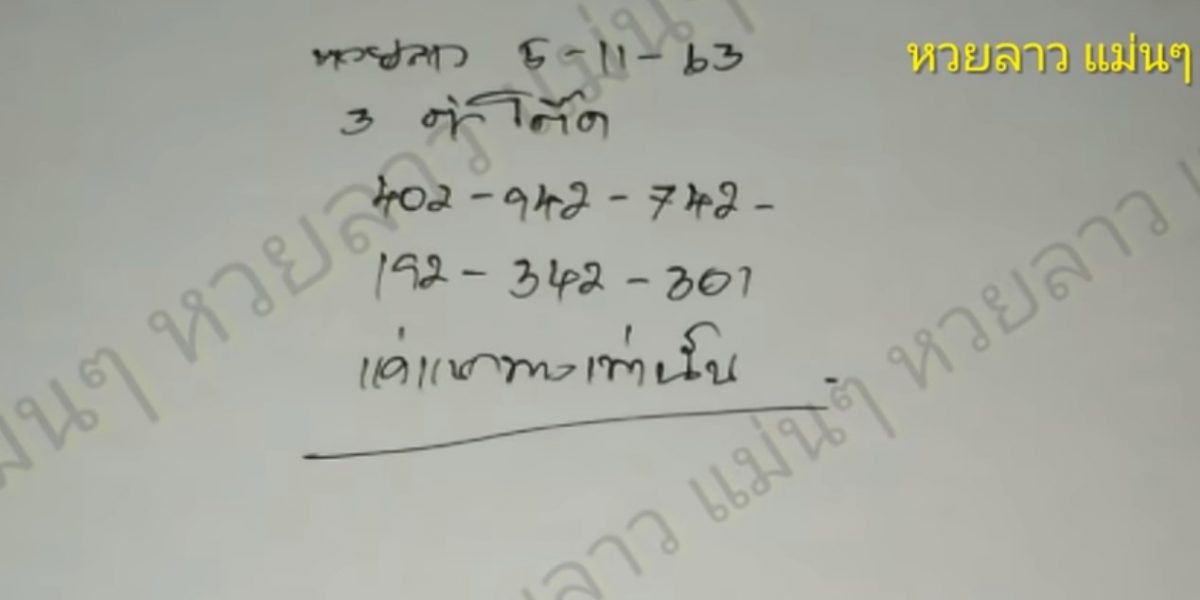 หวยลาว 5-11-63
หวยลาว แม่นๆ
3 ตัวโต๊ด
402 - 942 - 742 -
192 - 342 - 301
แค่แนวทางเท่านั้น
หวยลาว แม่นๆ
หวยลาว แม่นๆ